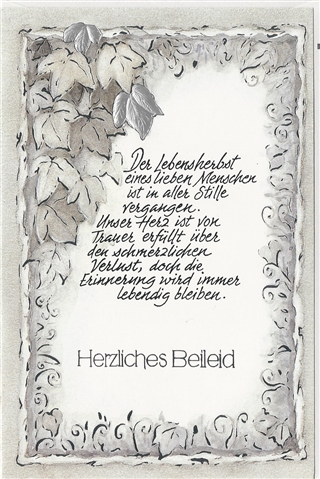 Der Lebensherbst
eines lieben Menschen
ist in aller Stille
vergangen.
Unser Herz ist von
Trauer erfüllt über
den schmerzlichen
Verlust, doch die
Erinnerung wird immer
lebendig bleiben.
Herzliches Beileid